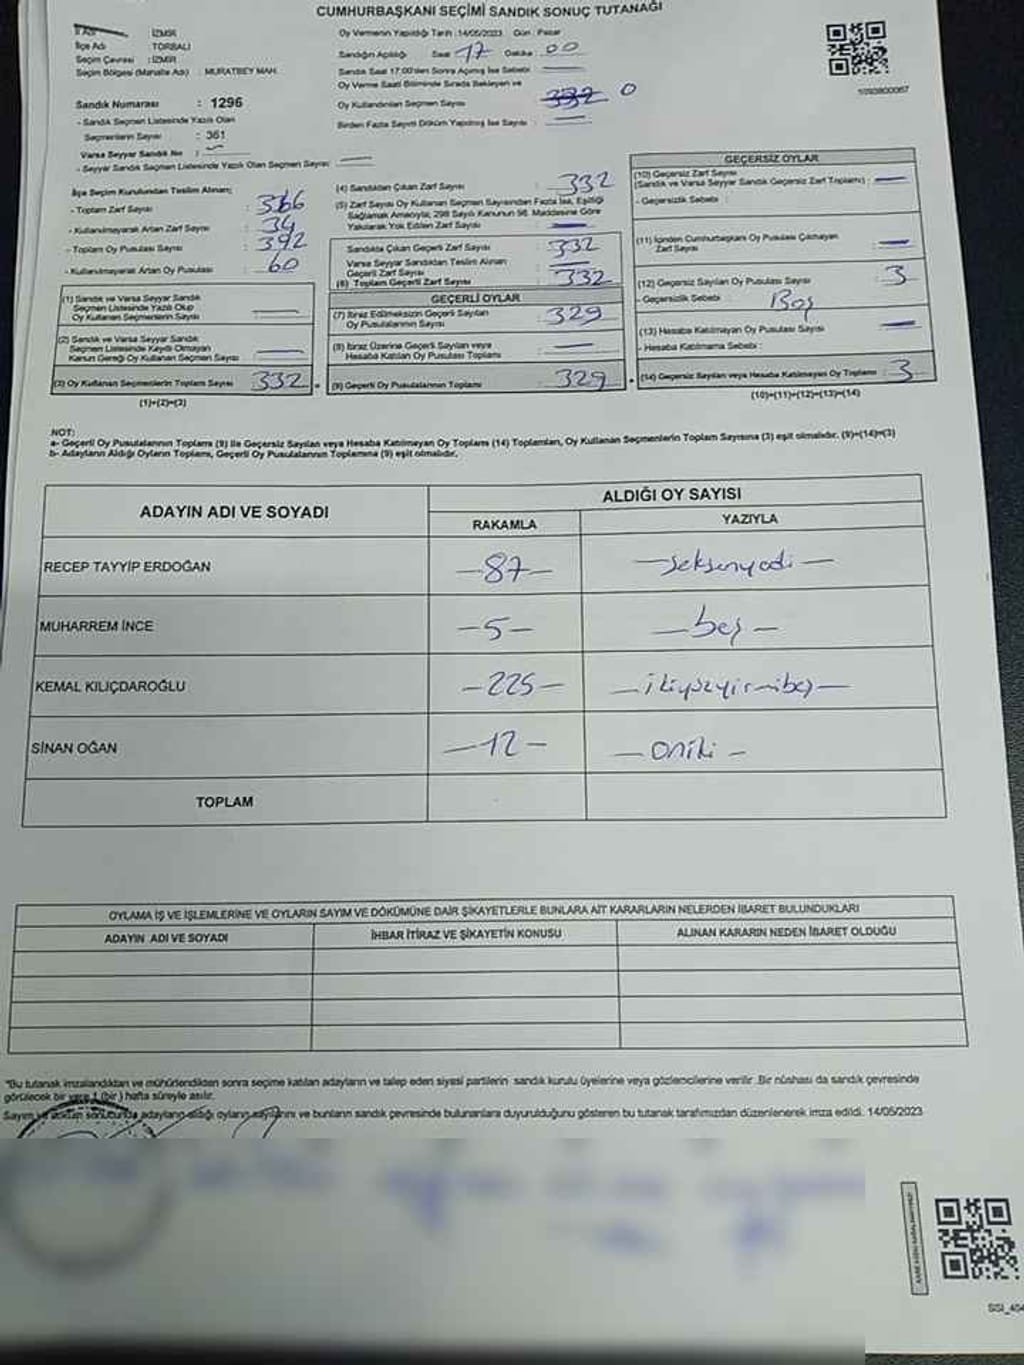 CUMHURBAŞKANI SEÇİMİ SANDIK SONUÇ TUTANAĞI
İl Adı : İZMİR
İlçe Adı : TORBALI
Seçim Çevresi : İZMİR
Seçim Bölgesi (Mahalle Adı) : MURATBEY MAH.
Sandık Numarası : 1296
- Sandık Seçmen Listesinde Yazılı Olan
Seçmenlerin Sayısı : 361
Varsa Seyyar Sandık No :
- Seyyar Sandık Seçmen Listesinde Yazılı Olan Seçmen Sayısı :
Oy Vermenin Yapıldığı Tarih :14/05/2023 Gün : Pazar
Sandığın Açıldığı Saat 17 Dakika : 00
Sandık Saat 17:00'den Sonra Açılmış İse Sebebi :
Oy Verme Saati Bitiminde Sırada Bekleyen ve
Oy Kullandırılan Seçmen Sayısı : 332 0
Birden Fazla Sayım Döküm Yapılmış İse Sayısı :
İlçe Seçim Kurulundan Teslim Alınan;
- Toplam Zarf Sayısı : 366
- Kullanılmayarak Artan Zarf Sayısı : 34
- Toplam Oy Pusulası Sayısı : 392
- Kullanılmayarak Artan Oy Pusulası : 60
(1) Sandık ve Varsa Seyyar Sandık
Seçmen Listesinde Yazılı Olup
Oy Kullanan Seçmenlerin Sayısı :
(2) Sandık ve Varsa Seyyar Sandık
Seçmen Listesinde Kayıtlı Olmayan
Kanun Gereği Oy Kullanan Seçmen Sayısı :
(3) Oy Kullanan Seçmenlerin Toplam Sayısı : 332
(1)+(2)=(3)
(4) Sandıktan Çıkan Zarf Sayısı : 332
(5) Zarf Sayısı Oy Kullanan Seçmen Sayısından Fazla İse, Eşitliği
Sağlamak Amacıyla; 298 Sayılı Kanunun 98. Maddesine Göre
Yakılarak Yok Edilen Zarf Sayısı :
Sandıkta Çıkan Geçerli Zarf Sayısı : 332
Varsa Seyyar Sandıktan Teslim Alınan
Geçerli Zarf Sayısı :
(6) Toplam Geçerli Zarf Sayısı : 332
GEÇERLİ OYLAR
(7) İtiraz Edilmeksizin Geçerli Sayılan
Oy Pusulalarının Sayısı : 329
(8) İtiraz Üzerine Geçerli Sayılan veya
Hesaba Katılan Oy Pusulası Toplamı :
(9) Geçerli Oy Pusulalarının Toplamı : 329
GEÇERSİZ OYLAR
(10) Geçersiz Zarf Sayısı
(Sandık ve Varsa Seyyar Sandık Geçersiz Zarf Toplamı) :
- Geçersizlik Sebebi :
(11) İçinden Cumhurbaşkanı Oy Pusulası Çıkmayan
Zarf Sayısı :
(12) Geçersiz Sayılan Oy Pusulası Sayısı : 3
- Geçersizlik Sebebi : Boş
(13) Hesaba Katılmayan Oy Pusulası Sayısı :
- Hesaba Katılmama Sebebi :
(14) Geçersiz Sayılan veya Hesaba Katılmayan Oy Toplamı : 3
(10)+(11)+(12)+(13)=(14)
NOT:
a- Geçerli Oy Pusulalarının Toplamı (9) ile Geçersiz Sayılan veya Hesaba Katılmayan Oy Toplamı (14) Toplamları, Oy Kullanan Seçmenlerin Toplam Sayısına (3) eşit olmalıdır. (9)+(14)=(3)
b- Adayların Aldığı Oyların Toplamı, Geçerli Oy Pusulalarının Toplamına (9) eşit olmalıdır.
ADAYIN ADI VE SOYADI
ALDIĞI OY SAYISI
RAKAMLA YAZIYLA
RECEP TAYYİP ERDOĞAN -87- -seksenyedi-
MUHARREM İNCE -5- -beş-
KEMAL KILIÇDAROĞLU -225- -ikiyüzyirmibeş-
SİNAN OĞAN -12- -oniki-
TOPLAM
OYLAMA İŞ VE İŞLEMLERİNE VE OYLARIN SAYIM VE DÖKÜMÜNE DAİR ŞİKAYETLERLE BUNLARA AİT KARARLARIN NELERDEN İBARET BULUNDUKLARI
ADAYIN ADI VE SOYADI İHBAR İTİRAZ VE ŞİKAYETİN KONUSU ALINAN KARARIN NEDEN İBARET OLDUĞU
"Bu tutanak imzalandıktan ve mühürlendikten sonra seçime katılan adayların ve talep eden siyasi partilerin sandık kurulu üyelerine veya gözlemcilerine verilir. Bir nüshası da sandık çevresinde
görülecek bir yere 1 (bir) hafta süreyle asılır.
Sayım ve döküm sonucunda adayların aldığı oyların sayılarını ve bunların sandık çevresinde bulunanlara duyurulduğunu gösteren bu tutanak tarafımızdan düzenlenerek imza edildi. 14/05/2023